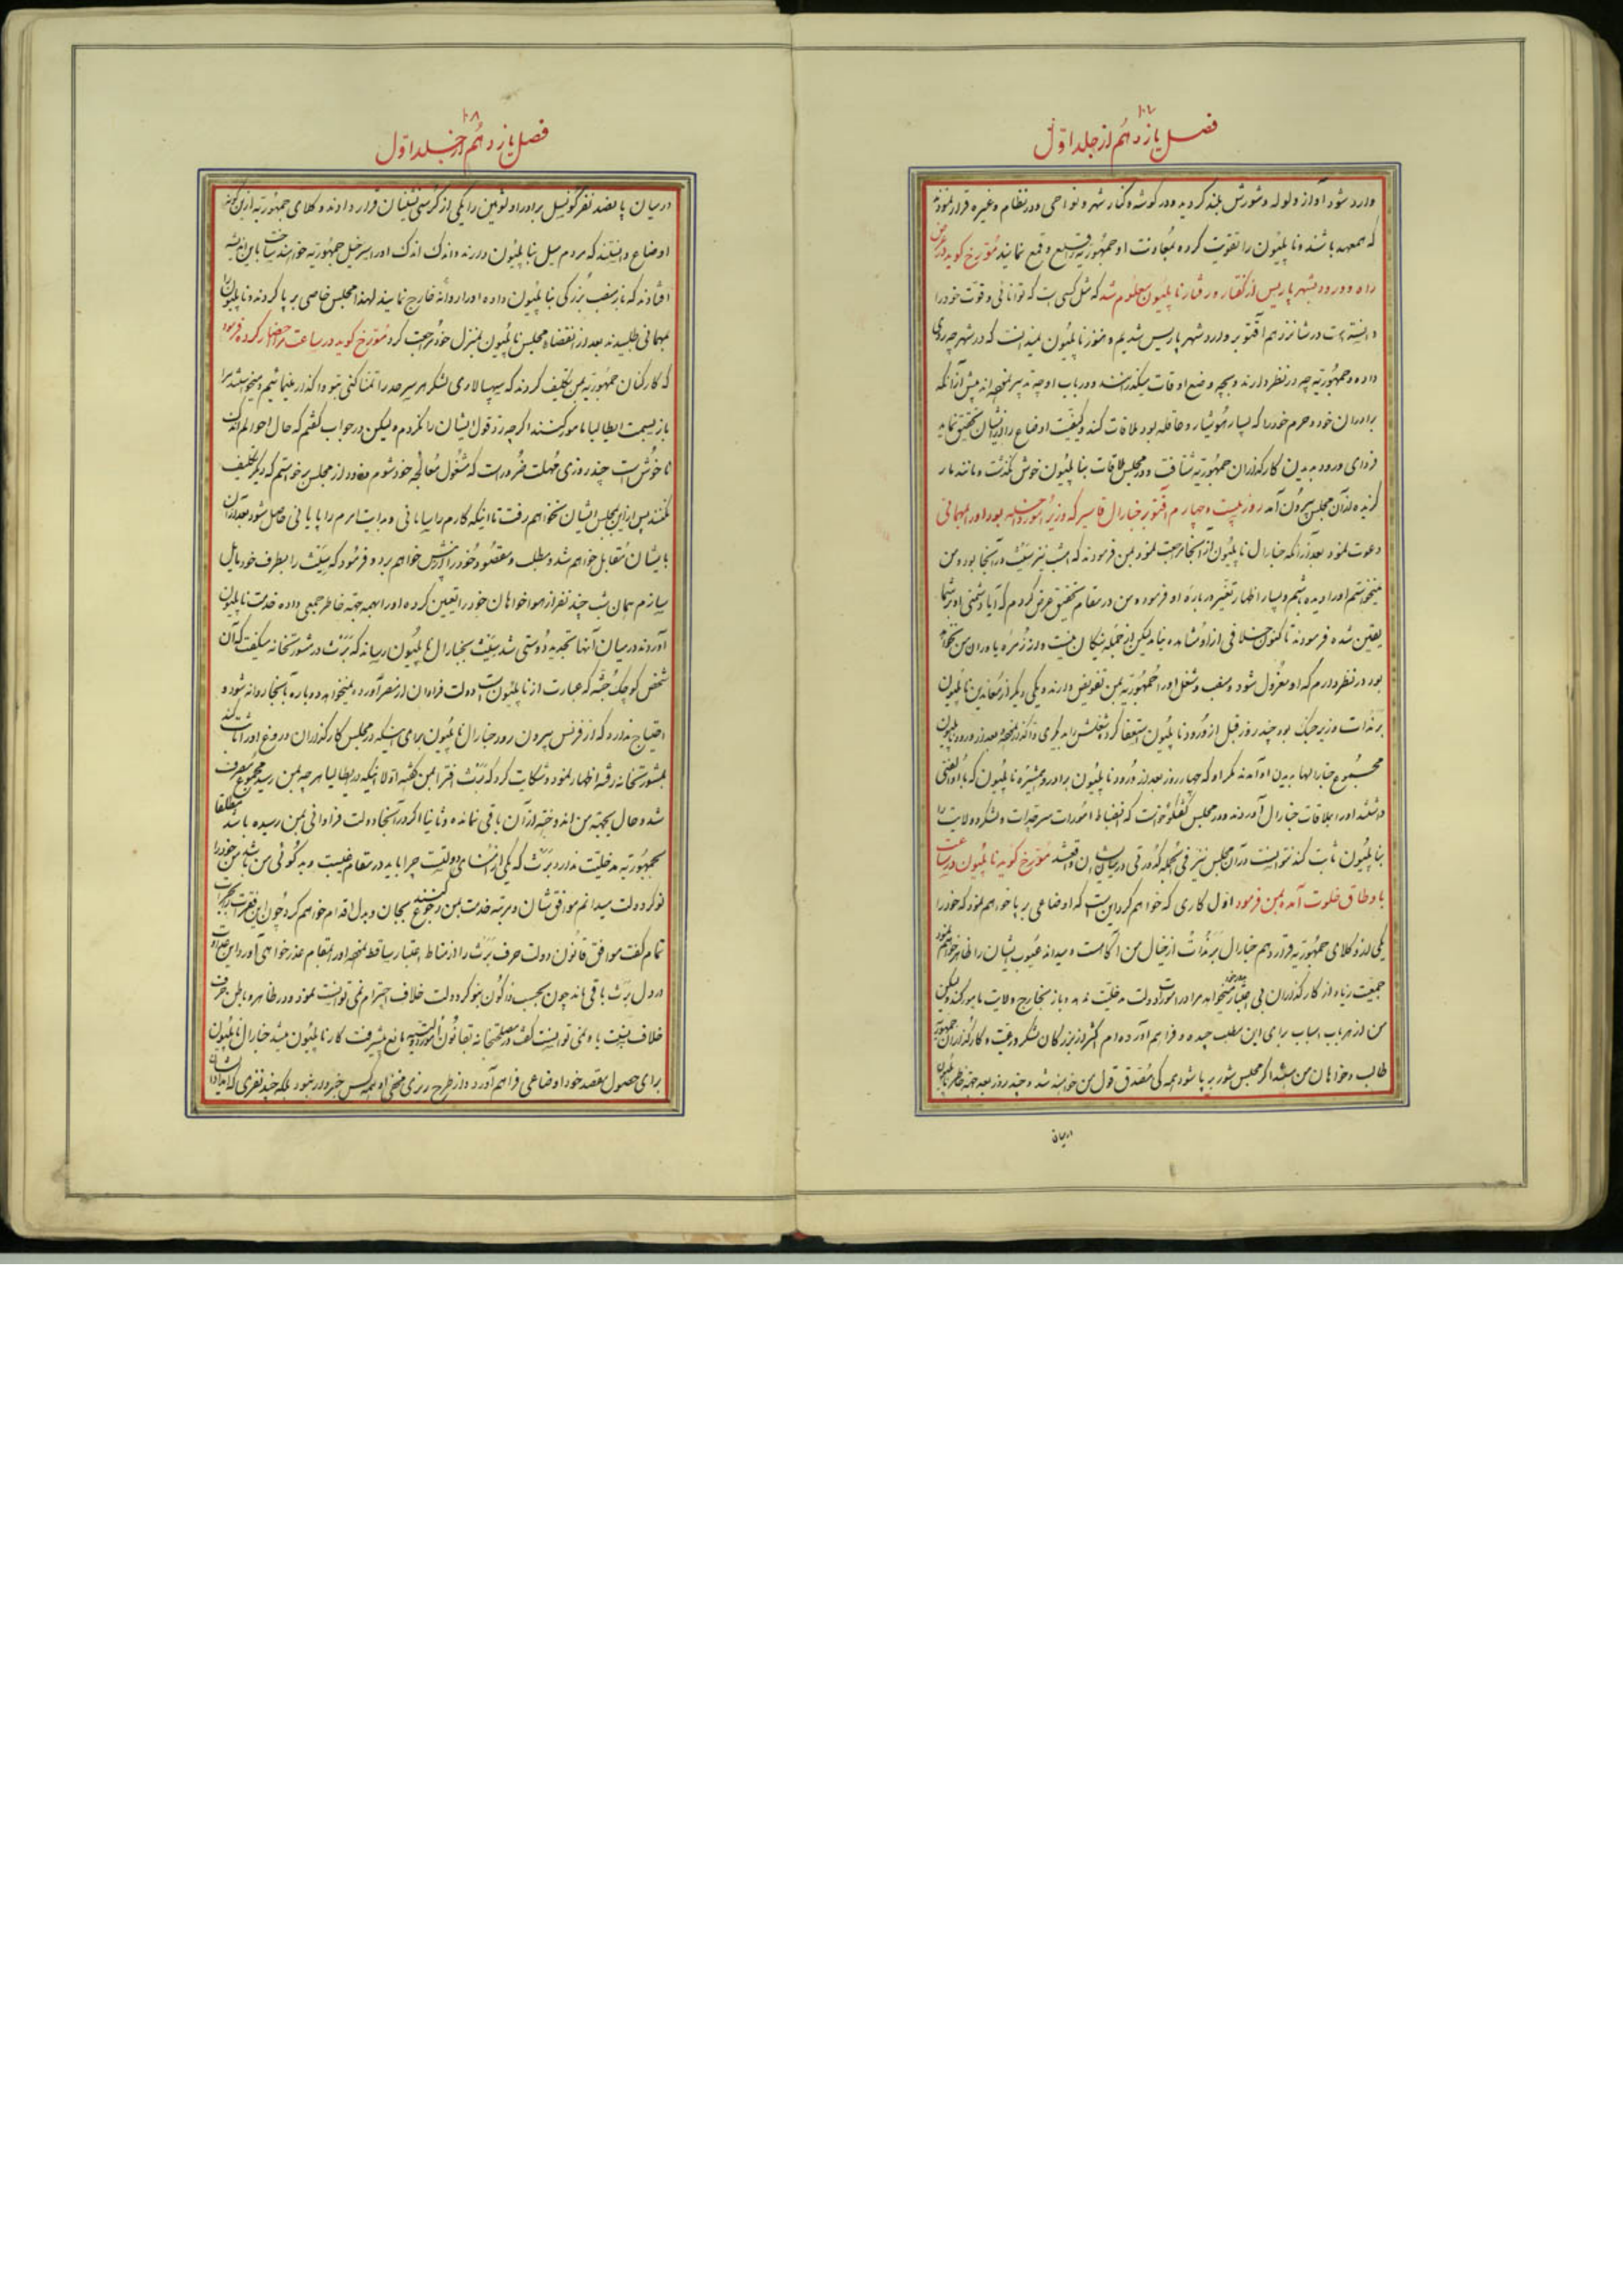 ۱۰۷
فصل یازدهم از جلد اول
وارد شود آواز ولوله و شورش بلند کردید و در کوشه و کنار شهر و نواحی و در نظام و غیره قرار نمودند
که همعهد باشند و ناپلیون را تقویت کرده بمعاونت او جمهوریه را قلع و قمع نمایند مورخ کوید در عرض
راه و ورود بشهر پاریس از کفتار و رفتار ناپلیون معلوم شد که مثل کسی است که توانائی و قوت خود را
دانسته است در شانزدهم اقتوبر وارد شهر پاریس شدیم و هنوز ناپلیون نمیدانست که در شهر چه روی
داده و جمهوریه چه در نظر دارند و بچه وضع اوقات میکذرانند و در باب او چه تدبیر نموده اند پیش از آنکه
برادران خود و حرم خود را که بسیار هوشیار و عاقله بود ملاقات کند و کیفیت اوضاع را از ایشان تحقیق نماید
فردای ورود بدیدن کارکذاران جمهوریه شتافت و در مجلس ملاقات بناپلیون خوش نکذشت و مانند مار
کزیده از آن مجلس بیرون آمد روز بیست و چهارم اقتوبر جنارال قاسیر که وزیر امور داخله بود او را بمهمانی
دعوت نمود بعد از آنکه جنارال ناپلیون از آنجا مراجعت نمود بمن فرمودند که امشب نیز سیث در آنجا بود و من
نمیخواستم او را دیده باشم و بسیار اظهار تغیر در باره او فرمود و من در مقام تحقیق عرض کردم که آیا دشمنی او بر شما
یقین شده فرمودند تا کنون خلافی از او مشاهده نیامد لیکن از جمله نیکان نیست و در زمره یاوران من نخواهد
بود در نظر دارم که او معزول شود و منصب و شغل او را جمهوریه بمن تفویض دارند و یکی دیکر از معاندین ناپلیون
برنادات وزیر جنک بود چند روز قبل از ورود ناپلیون استعفا کرد و شغلش را بدیکری واکذار نمودند بعد از ورود ناپلیون
مجموع جنارالها بدیدن او آمدند مکر او که چهار روز بعد از ورود ناپلیون برادر و همشیره ناپلیون که با او الفتی
داشتند او را بملاقات جنارال آوردند و در مجلس کفتکو خواست که انضباط امورات سرحدات و لشکر و ولایت را
بناپلیون ثابت کند نتوانست و در آن مجلس نیز فی الجمله کدورتی در میان ایشان واقع شد مورخ کوید ناپلیون در ساعت
باوطاق خلوت آمده بمن فرمود اول کاری که خواهم کرد این است که اوضاعی برپا خواهم نمود که خود را
یکی از وکلای جمهوریه قرار دهم جنارال برنادات از خیال من آکاه است و میداند عیوب ایشان را ظاهر خواهم نمود
جمعیت زیاد از کارکذاران بی اعتبار نمیخواهند مرا در امورات دولت مدخلیت بدهند و باز بخارج ولایت مامور کنند ولیکن
من از هر باب اسباب برای این مطلب چیده و فراهم آورده ام اکثر از بزرکان لشکر و رعیت و کارکذاران جمهوریه
طالب و خواهان من میباشند اکر مجلس شور برپا شود همه کی مصدق قول من خواهند شد و چند روز بعد بجهة خاطر ناپلیون
درمیان
۱۰۸
فصل یازدهم از جلد اول
درمیان پانصد نفر کونسل برادر او لوشین را یکی از کرسی نشینان قرار دادند وکلای جمهوریه از این کونه
اوضاع دانستند که مردم میل بناپلیون دارند و اندک اندک او را سرخیل جمهوریه خواهند ساخت باین اندیشه
افتادند که باز منصب بزرکی بناپلیون داده او را روانه خارج نمایند لهذا مجلس خاصی برپا کردند و ناپلیون را
بمهمانی طلبیدند بعد از انقضاء مجلس ناپلیون بمنزل خود مراجعت کرد مورخ کوید در ساعت مرا احضار کرده فرمود
که کارکنان جمهوریه بمن تکلیف کردند که سپهسالاری لشکر هر سرحد را تمنا کنی بتو واکذار مینمائیم و میخواستند مرا
باز بسمت ایطالیا مامور کنند اکرچه رد قول ایشان را نکردم ولیکن در جواب کفتم که حال احوالم اندک
ناخوش است چند روزی مهلت ضرور است که مشغول معالجه خود شوم و زود از مجلس برخواستم که دیکر تکلیف
نکنند پس از این بمجلس ایشان نخواهم رفت تا اینکه کارم را سامانی و بدایت امرم را پایانی حاصل شود بعد از آن
با ایشان مقابل خواهم شد و مطلب و مقصود خود را از پیش خواهم برد و فرمود که سیث را بطرف خود مایل
سازم همان شب چند نفر از هواخواهان خود را تعیین کرده او را بهمه جهة خاطر جمعی داده خدمت ناپلیون
آوردند در میان آنها تجدید دوستی شد سیث بجنارال ناپلیون رسانید که برث در مشورتخانه میکفت که آن
شخص کوچک جثه که عبارت از ناپلیون است دولت فراوان از مصر آورده نمیخواهد دوباره بآنجا روانه شود و
احتیاج ندارد که از فرنس بیرون رود جنارال ناپلیون برای اینکه در مجلس کارکذاران دروغ او را اثبات کند
بمشورتخانه رفته اظهار نمود و شکایت کرد که برث افترا بمن کفته اولا اینکه در ایطالیا هر چه بمن رسید مجموع صرف
شد و حال بجهته من اندوخته از آن باقی نمانده و ثانیا اکر در آنجا دولت فراوانی بمن رسیده باشد مطلقا
بجمهوریه مدخلیت ندارد برث که یکی از امنای دولت است چرا باید در مقام غیبت و بدکوئی من باشد من خود را
نوکر دولت میدانم موافق شان و مرتبه خدمت بمن رجوع کنند بجان و دل اقدام خواهم کرد چون این فقرات
تمام کفت موافق قانون دولت حرف برث را از مناط اعتبار ساقط نموده او را بمقام عذرخواهی آورد این عداوت
در دل برث باقی ماند چون بحسب قانون نوکر دولت خلاف احترام نمی توانست نمود و در ظاهر و باطن حرف
خلاف نسبت باو نمی توانست کفت در مصلحتخانه بقانون مانع پیشرفت کار ناپلیون میشد جنارال ناپلیون
برای حصول مقصد خود اوضاعی فراهم آورد و از طرح ریزی مخفی او همه کس خبردار نبود بلکه چند نفری که